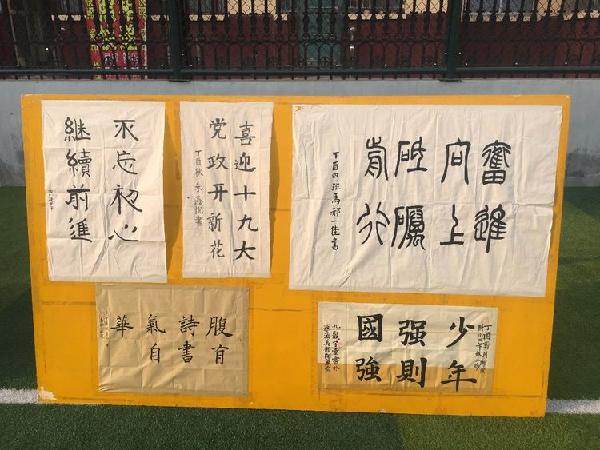 不忘初心
继續前進
喜迎十九大
党政开新花
奮進
向上
砥礪
前行
腹有
詩書
氣自
華
少年
强則
國強